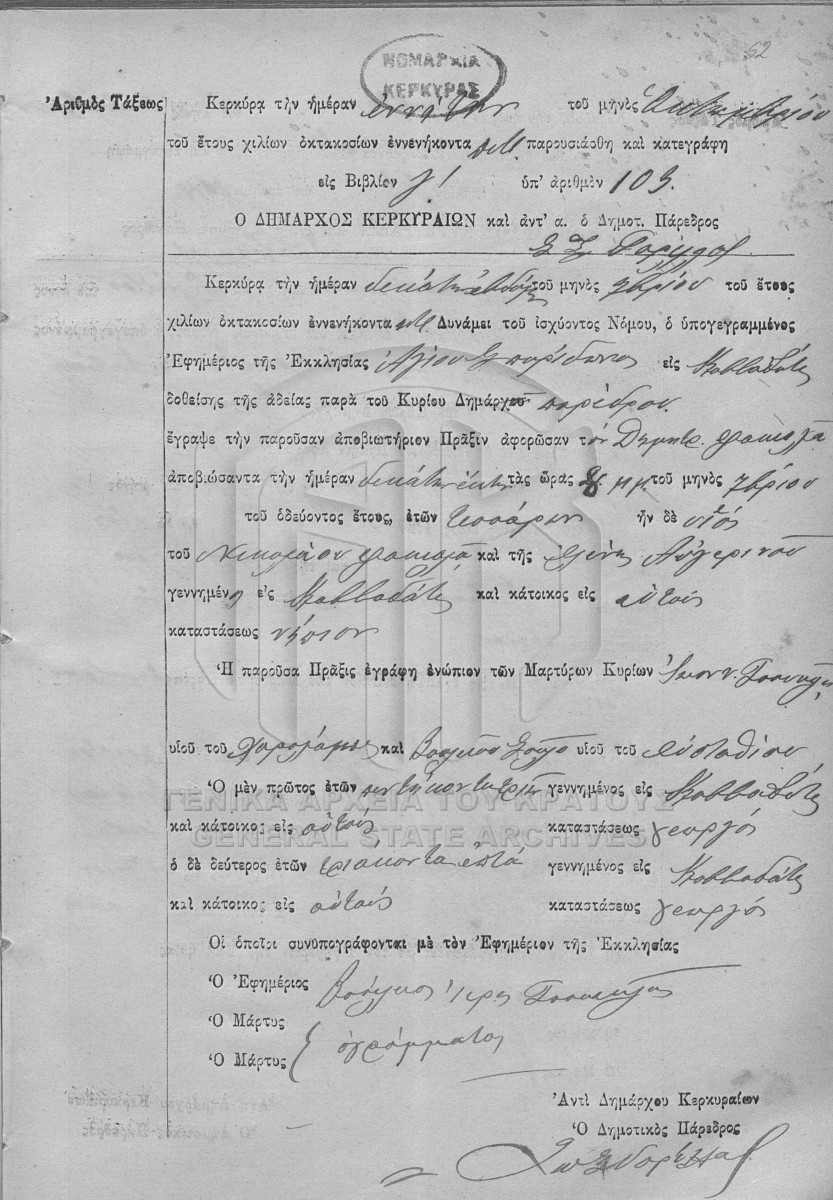 52
ΝΟΜΑΡΧΙΑ
ΚΕΡΚΥΡΑΣ
Ἀριθμὸς Τάξεως
Κερκύρᾳ τὴν ἡμέραν ἐννάτην τοῦ μηνὸς Ὀκτωμβρίου
τοῦ ἔτους χιλίων ὀκτακοσίων ἐννενήκοντα παρουσιάσθη καὶ κατεγράφη
εἰς Βιβλίον γ' ὑπ' ἀριθμὸν 103.
Ο ΔΗΜΑΡΧΟΣ ΚΕΡΚΥΡΑΙΩΝ καὶ ἀντ' α. ὁ Δημοτ. Πάρεδρος
Κερκύρᾳ τὴν ἡμέραν δεκάτην ἑβδόμην τοῦ μηνὸς 7βρίου τοῦ ἔτους
χιλίων ὀκτακοσίων ἐννενήκοντα Δυνάμει τοῦ ἰσχύοντος Νόμου, ὁ ὑπογεγραμμένος
Ἐφημέριος τῆς Ἐκκλησίας Ἁγίου Σπυρίδωνος εἰς Καββαδάτες
δοθείσης τῆς ἀδείας παρὰ τοῦ Κυρίου Δημάρχου παρέδρου.
ἔγραψε τὴν παροῦσαν ἀποβιωτήριον Πρᾶξιν ἀφορῶσαν τὸν Δημήτρ.
ἀποβιώσαντα τὴν ἡμέραν δεκάτην ἕκτην τὰς ὥρας 8 μ.μ. τοῦ μηνὸς 7βρίου
τοῦ ὁδεύοντος ἔτους, ἐτῶν τεσσάρων ἦν δὲ υἱὸς
τοῦ Νικολάου καὶ τῆς Ἑλένης Αὐγερινοῦ
γεννημένος εἰς Καββαδάτες καὶ κάτοικος εἰς αὐτοὺς
καταστάσεως νήπιον
Ἡ παροῦσα Πρᾶξις ἐγράφη ἐνώπιον τῶν Μαρτύρων Κυρίων
υἱοῦ τοῦ Χαραλάμπους καὶ υἱοῦ τοῦ Εὐσταθίου
Ὁ μὲν πρῶτος ἐτῶν πεντήκοντα τριῶν γεννημένος εἰς Καββαδάτες
καὶ κάτοικος εἰς αὐτοὺς καταστάσεως γεωργός
ὁ δὲ δεύτερος ἐτῶν τριάκοντα ἑπτά γεννημένος εἰς Καββαδάτες
καὶ κάτοικος εἰς αὐτοὺς καταστάσεως γεωργός
Οἱ ὁποῖοι συνυπογράφονται μὲ τὸν Ἐφημέριον τῆς Ἐκκλησίας
Ὁ Ἐφημέριος Βασίλειος Ἱερεὺς
Ὁ Μάρτυς
Ὁ Μάρτυς ἀγράμματος
Ἀντὶ Δημάρχου Κερκυραίων
Ὁ Δημοτικὸς Πάρεδρος
ΓΕΝΙΚΑ ΑΡΧΕΙΑ ΤΟΥ ΚΡΑΤΟΥΣ
GENERAL STATE ARCHIVES